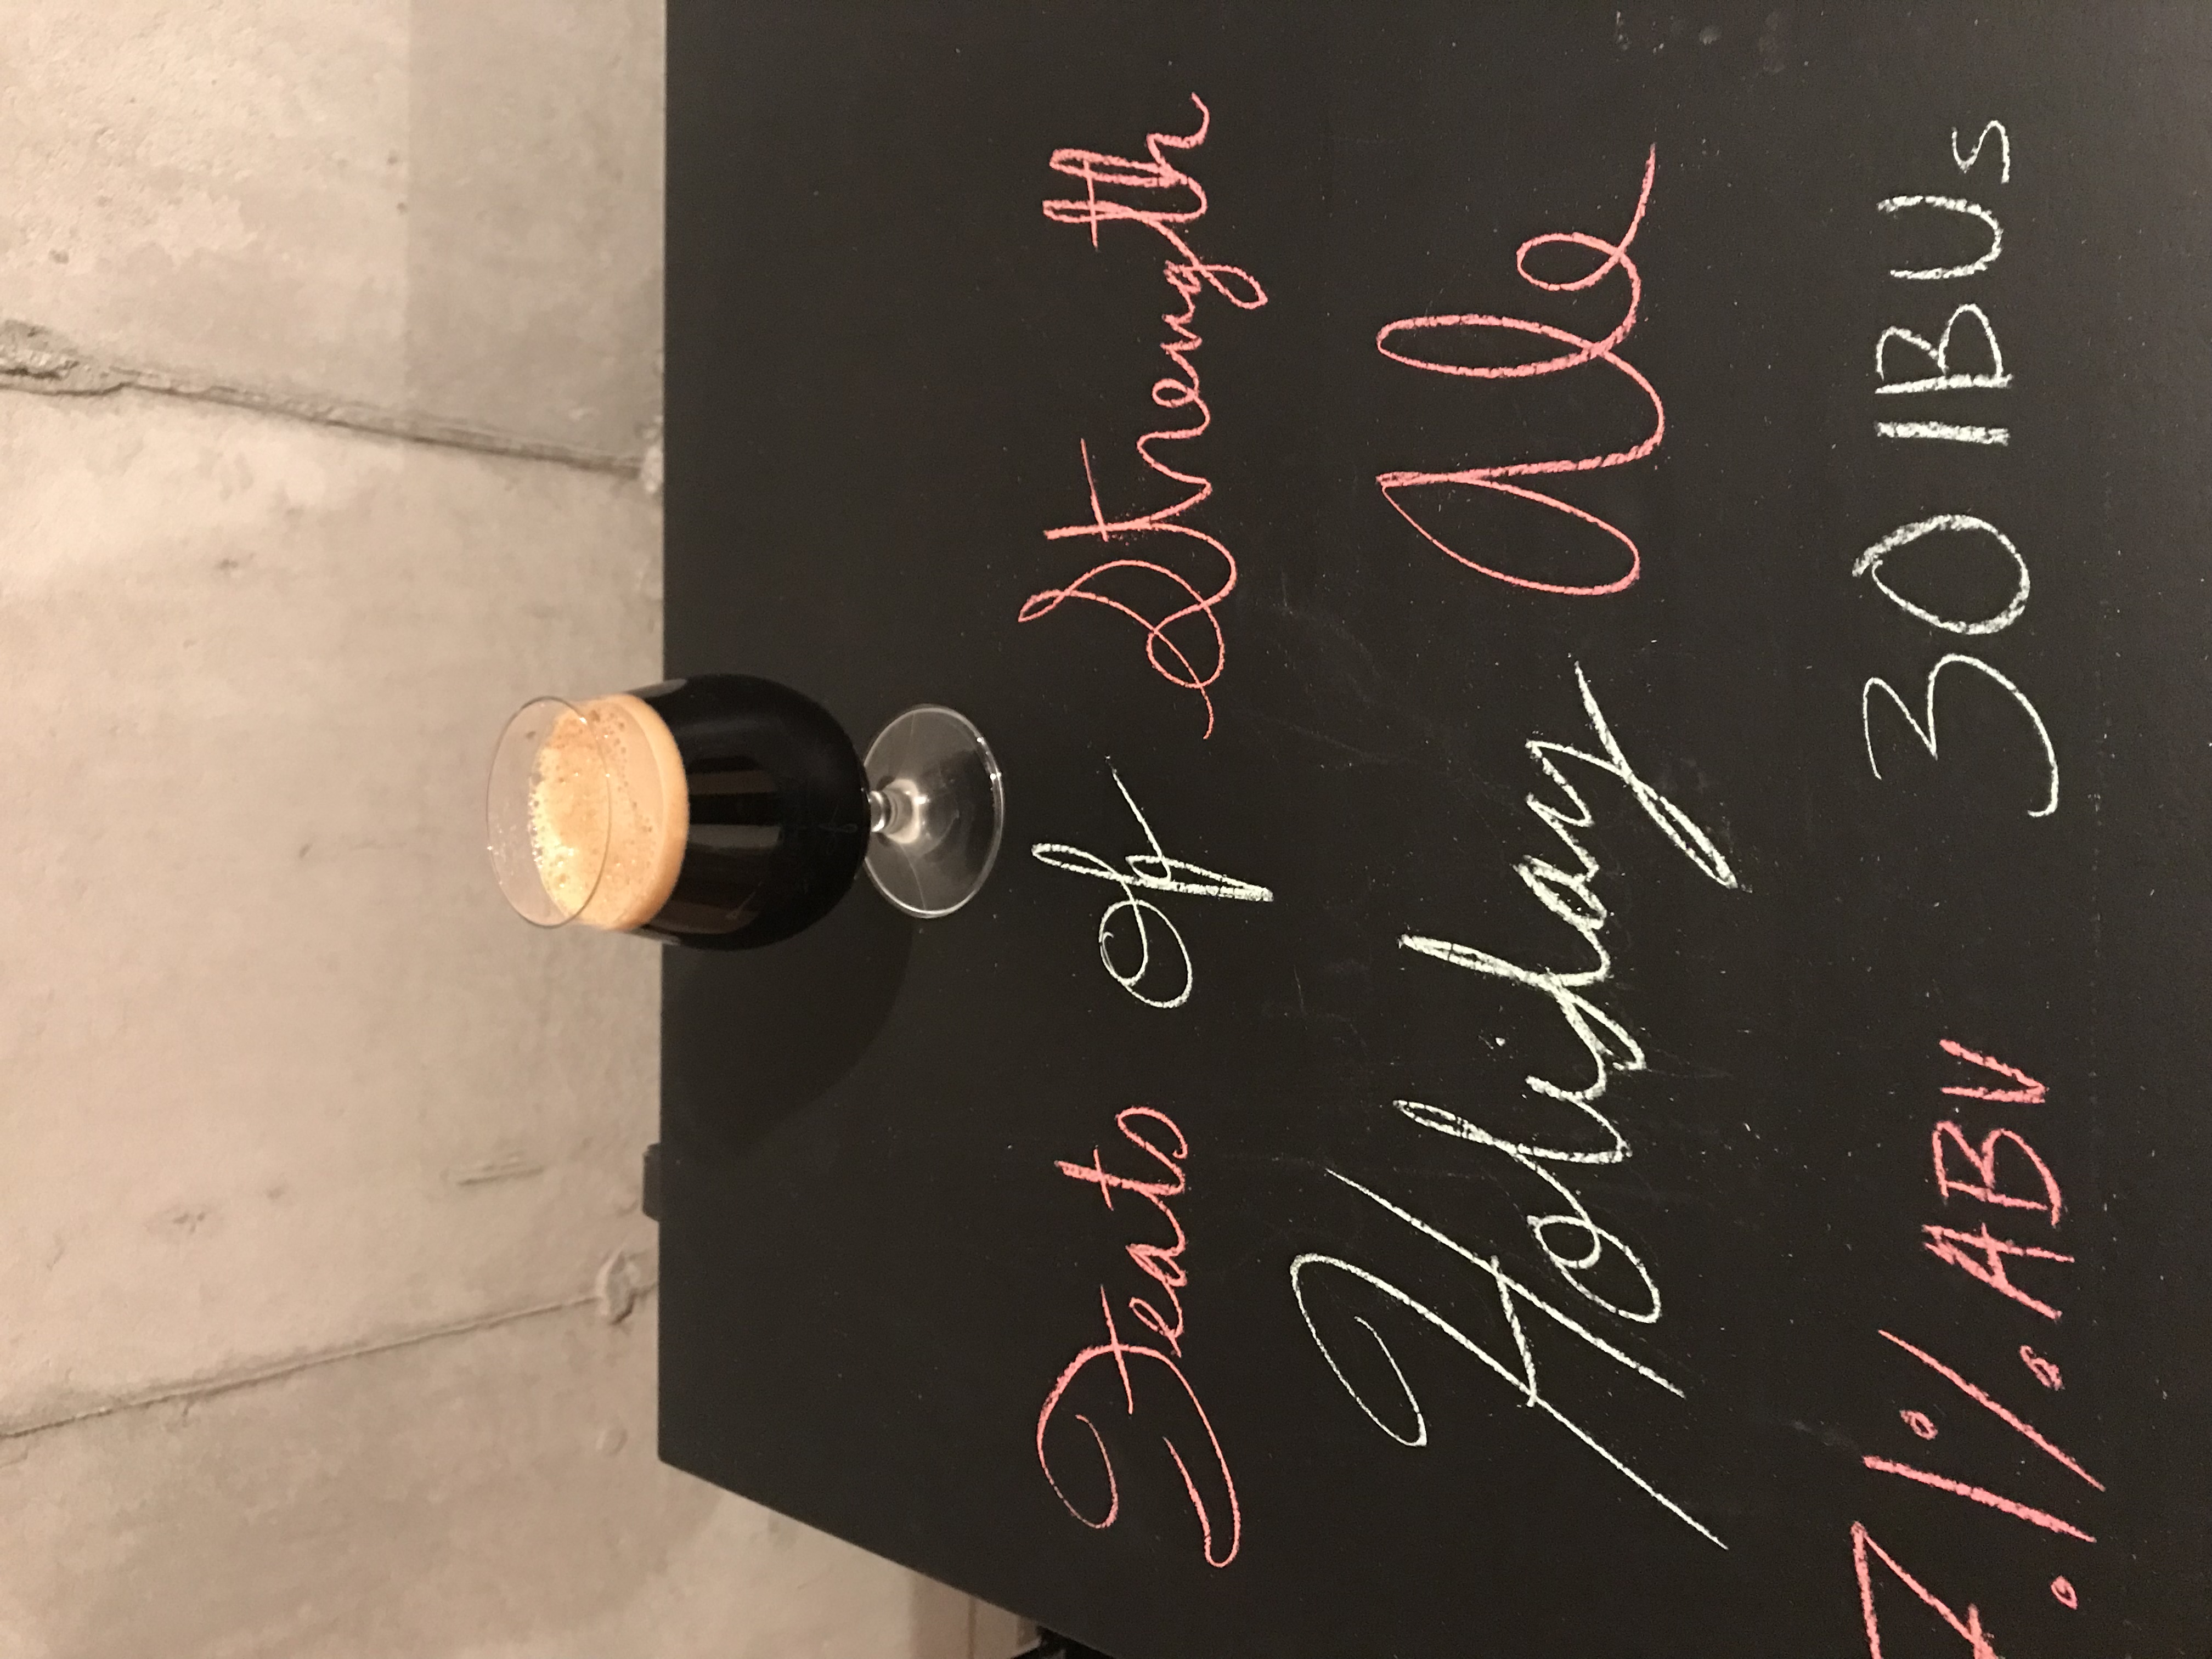 Feats of Strength
Holiday Ale
7.1% ABV 30 IBUs